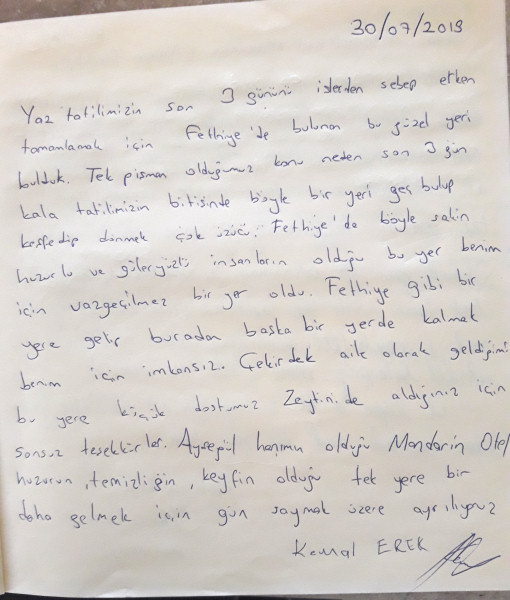 30/07/2019
Yaz tatilimizin son 3 gününü işlerden sebep erken
tamamlamak için Fethiye'de bulunan bu güzel yeri
bulduk. Tek pişman olduğumuz konu neden son 3 gün
kala tatilimizin bitişinde böyle bir yeri geç bulup
keşfedip dönmek çok üzücü. Fethiye'de böyle sakin
huzurlu ve güleryüzlü insanların olduğu bu yer benim
için vazgeçilmez bir yer oldu. Fethiye gibi bir
yere gelip buradan başka bir yerde kalmak
benim için imkansız. Çekirdek aile olarak geldiğimi
bu yere küçük dostumuz Zeytini de aldığınız için
sonsuz teşekkürler. Ayşegül hanımın olduğu Mandarin Otel
huzurun, temizliğin, keyfin olduğu tek yere bir
daha gelmek için gün saymak üzere ayrılıyoruz
Kemal EREK